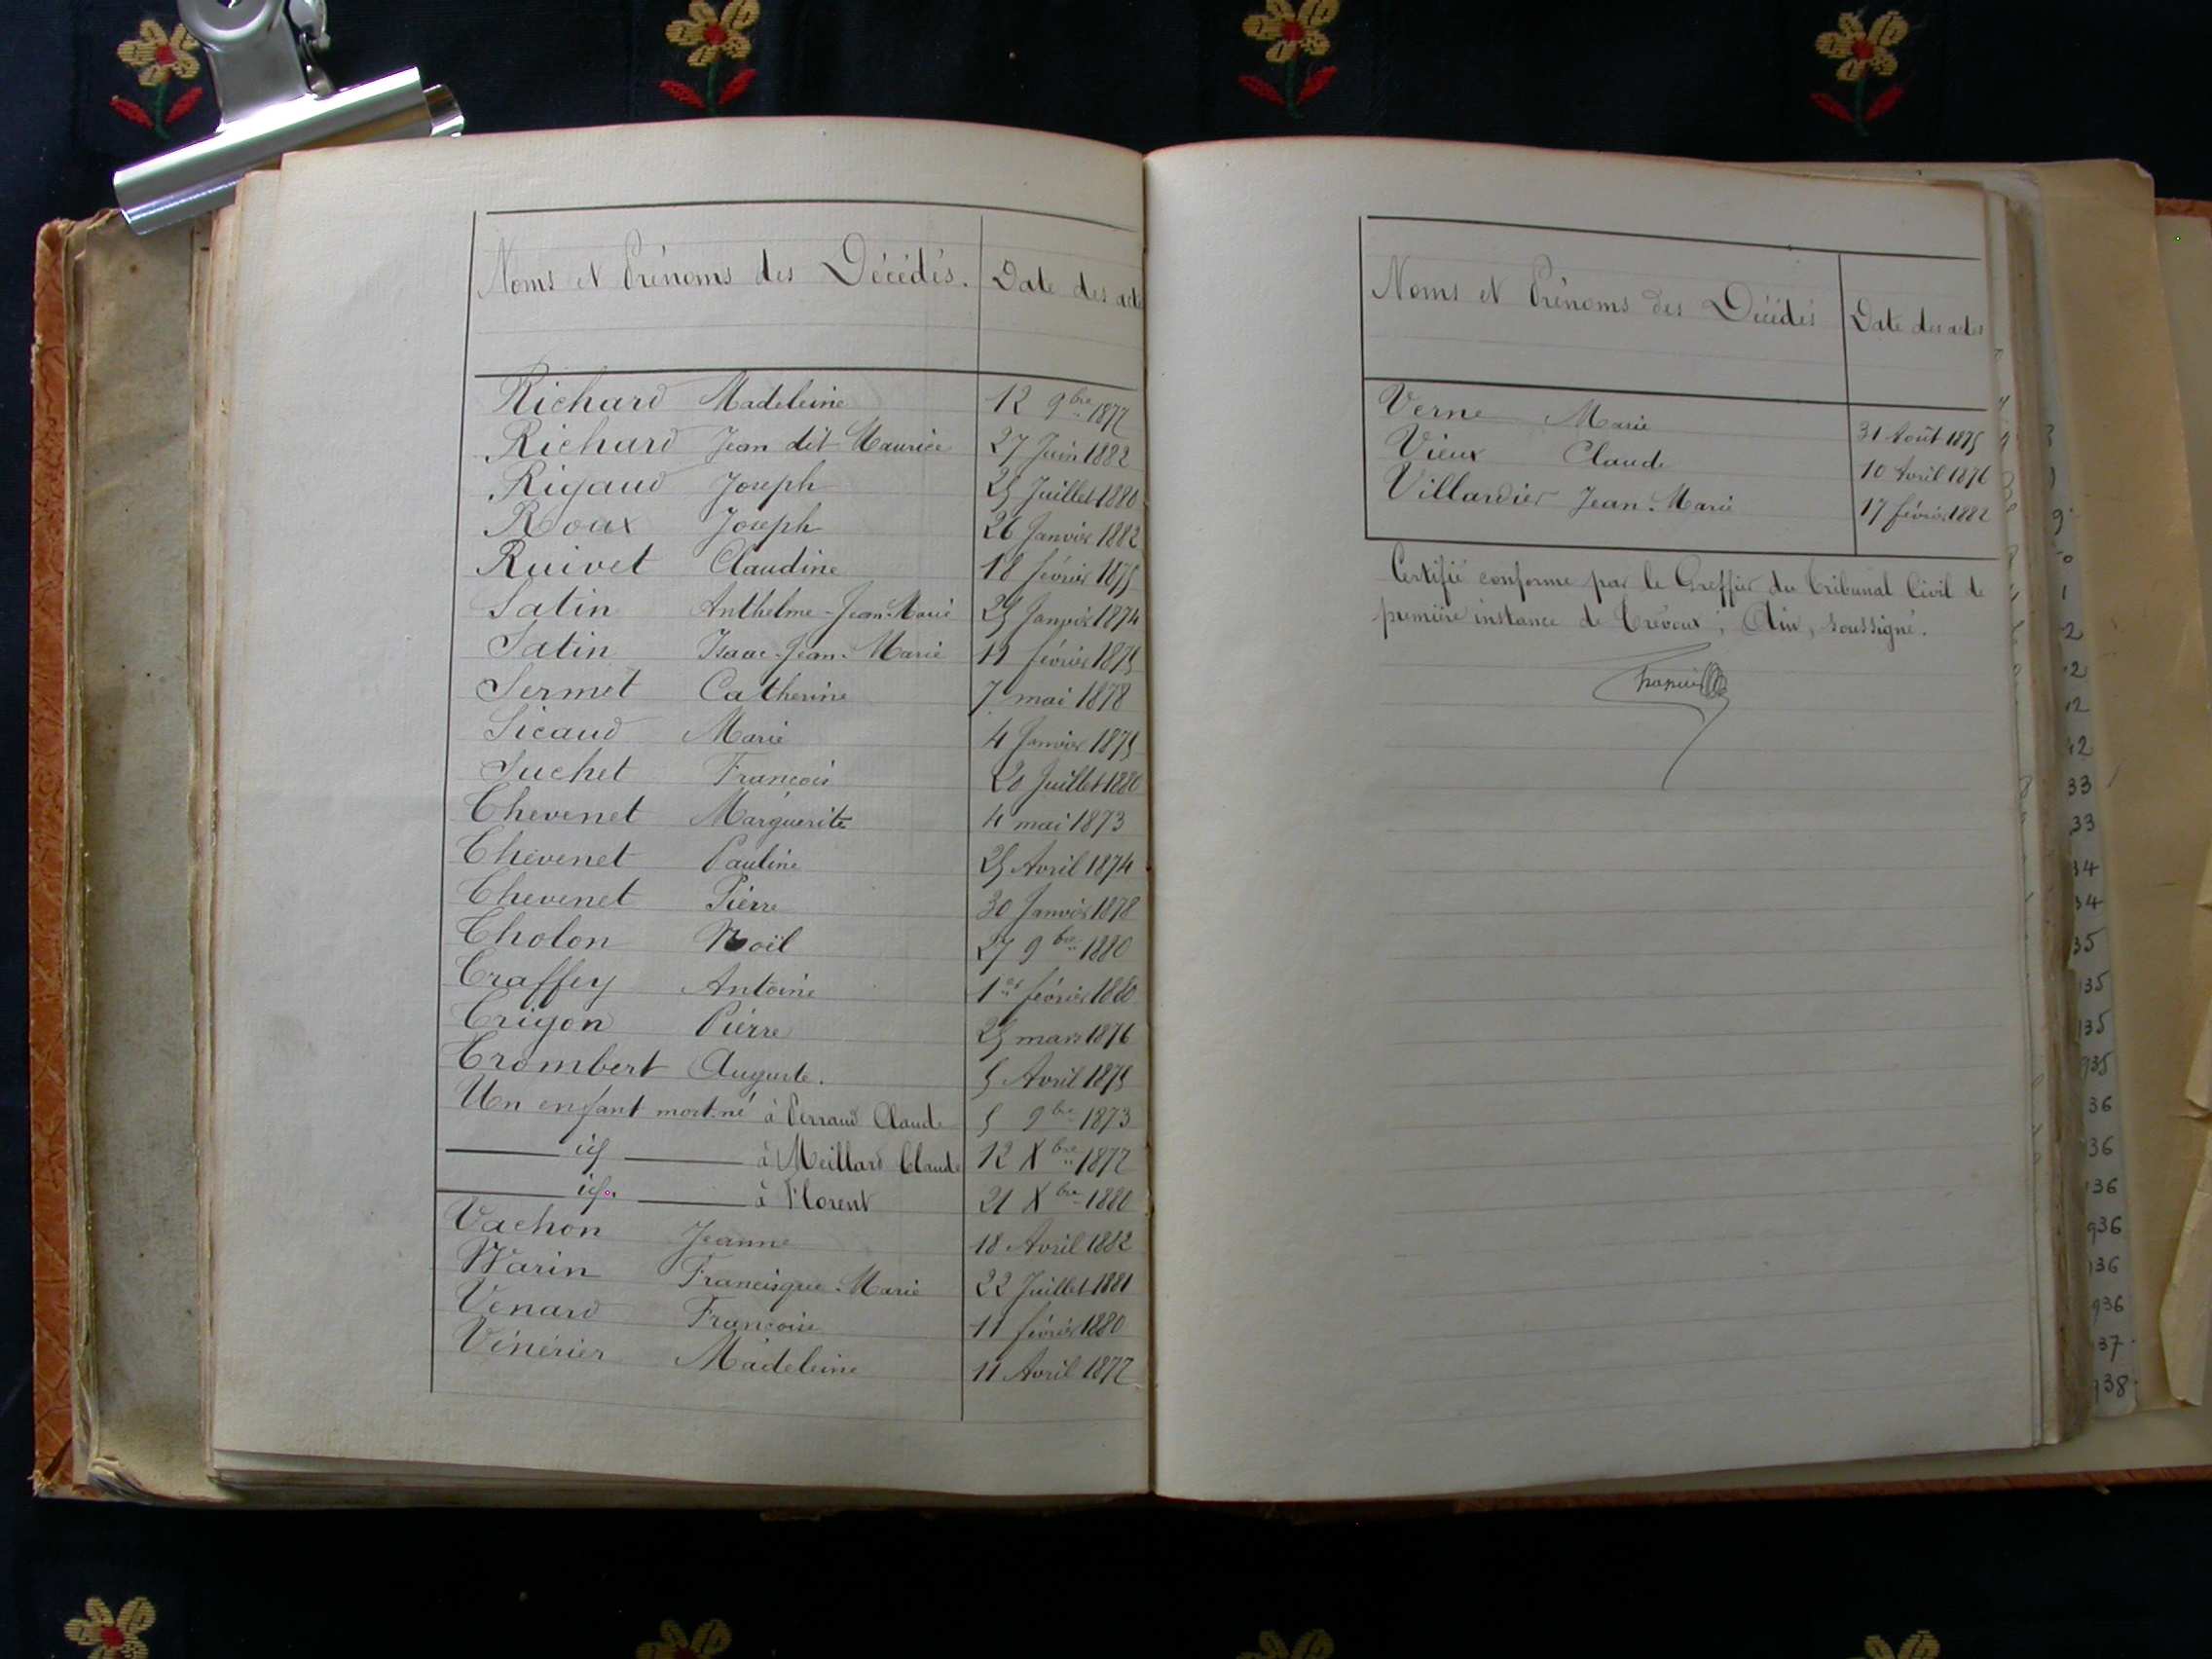 Noms et Prénoms des Décédés. Date des acte
Richard Madeleine 12 9bre 1877
Richard Jean dit Maurice 27 Juin 1882
Rigaud Joseph 25 Juillet 1880
Roux Joseph 26 Janvier 1882
Ruivet Claudine 18 février 1875
Satin Anthelme-Jean-Marie 25 Janvier 1874
Satin Isaac-Jean-Marie 11 février 1875
Sermet Catherine 7 mai 1878
Sicaud Marie 4 Janvier 1875
Suchet François 20 Juillet 1880
Thevenet Marguerite 4 mai 1873
Thévenet Pauline 25 Avril 1874
Thevenet Pierre 30 Janvier 1878
Tholon Noël 27 9bre 1880
Traffey Antoine 1er février 1880
Trigon Pierre 25 mars 1876
Trombert Auguste. 5 Avril 1875
Un enfant mort-né à Perraud Claude 5 9bre 1873
id à Meillard Claude 12 Xbre 1877
id. à Florent 21 Xbre 1880
Vachon Jeanne 18 Avril 1882
Warin Francisque-Marie 22 Juillet 1881
Venard Françoise 11 février 1880
Vénérier Madeleine 11 Avril 1877
Noms et Prénoms des Décédés Date des actes
Verne Marie 31 Août 1875
Vieux Claude 10 Avril 1876
Villardier Jean-Marie 17 février 1882
Certifié conforme par le Greffier du Tribunal Civil de
première instance de Trévoux, Ain, soussigné.
33
33
34
34
35
35
35
935
36
36
36
936
36
936
37
938